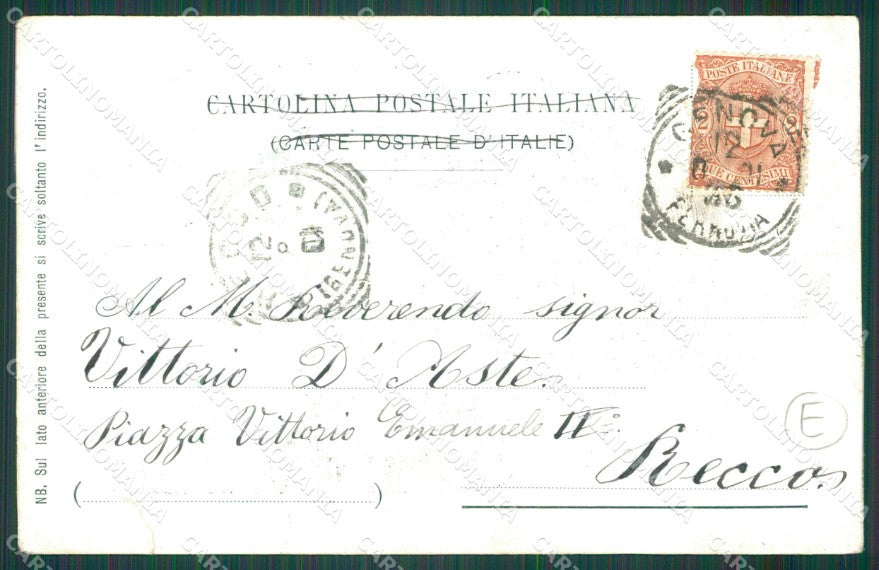 CARTOLINA POSTALE ITALIANA
(CARTE POSTALE D'ITALIE)
POSTE ITALIANE
DUE CENTESIMI
GENOVA
12
FERROVIA
(GENOVA)
12
Al M. Reverendo signor
Vittorio D'Aste.
Piazza Vittorio Emanuele IIº
Recco.
E
NB. Sul lato anteriore della presente si scrive soltanto l'indirizzo.
CARTOLINOMANIA